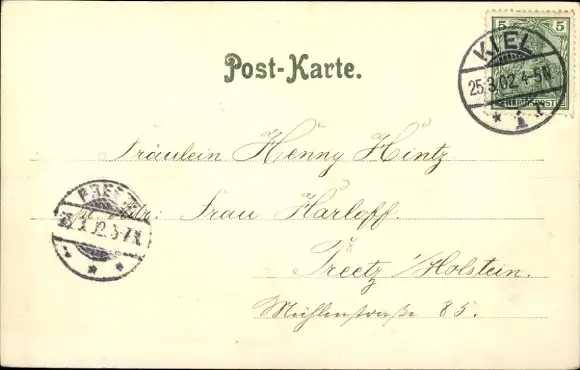 5 5
KIEL
25.3.02.4-5N
* 1 f
REICHSPOST
Post-Karte.
Fräulein Henny Hintz
PREETZ
Adr: Frau Harloff.
Preetz /Holstein.
Mühlenstraße 85.